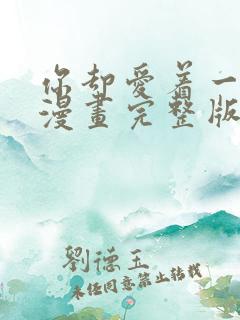 你却爱着一
漫畫完整版
劉德玉
未经同意禁止转载